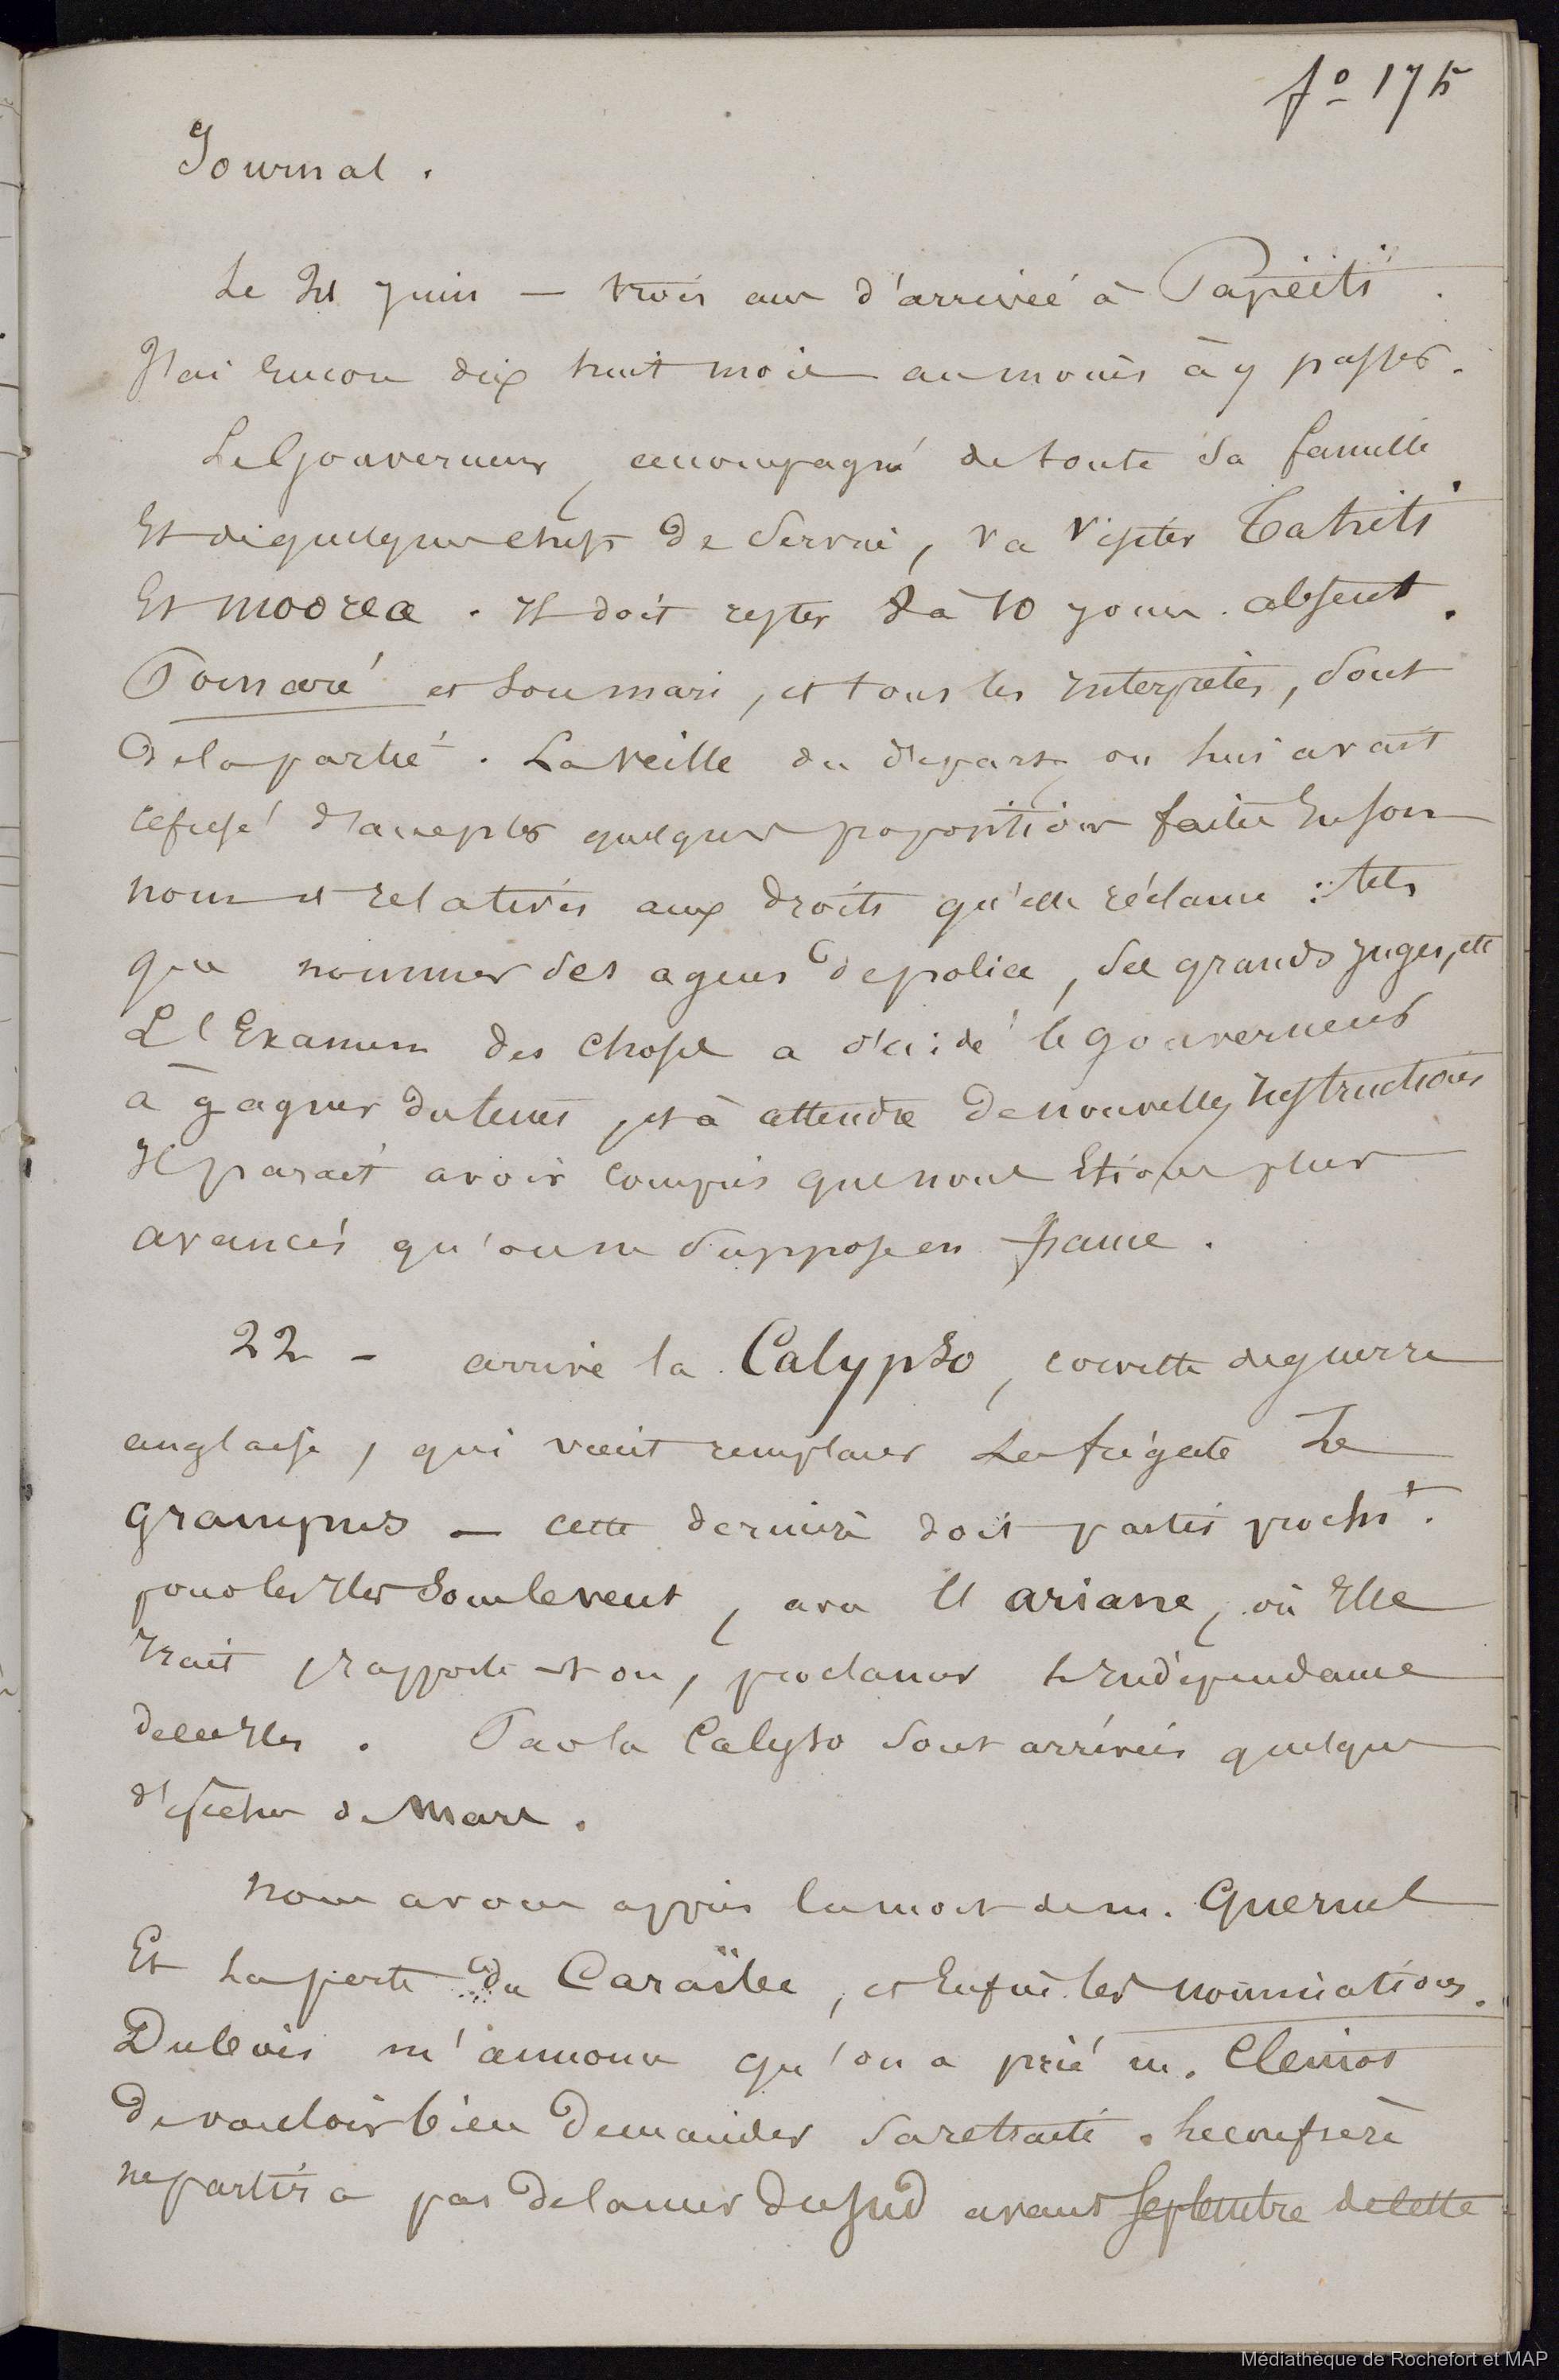 fo 175
Journal.
Le 21 juin — trois ans d'arrivée à Papeïti.
J'ai encore dix huit mois au moins à y passer.
Le Gouverneur, accompagné de toute sa famille
Et de quelques chefs de service, va visiter Tahiti
Et Moorea. Il doit rester 8 à 10 jours absent.
Pomaré et son mari, et tous les interprètes, sont
de la partie. La veille du départ, on lui avait
refusé d'accepter quelques propositions faites en son
nom et relatives aux droits qu'elle réclame : tels
que nommer des agens de police, des grands juges, etc
L'Examen des choses a décidé le gouverneur
à gagner du tems, et à attendre de nouvelles instructions
Il parait avoir compris que nous étions plus
avancés qu'on ne suppose en france.
22 — arrive la Calypso, corvette de guerre
anglaise, qui vient remplacer la frégate Le
Grampus — cette dernière doit partir procht.
pour les Iles sous le vent, avec l'ariane, où Elle
irait, rapporte-t-on, proclamer l'indépendance
de ces Iles. Par la Calypso sont arrivées quelques
dépêches de Mars.
nous avons appris la mort de m. Quernel
Et la perte du Caraïbe, et Enfin les nominations.
Dubois m'annonce qu'on a prié m. Clemot
de vouloir bien demander sa retraite. Le confrère
ne partira pas de la mer du sud avant septembre de cette
Médiathèque de Rochefort et MAP